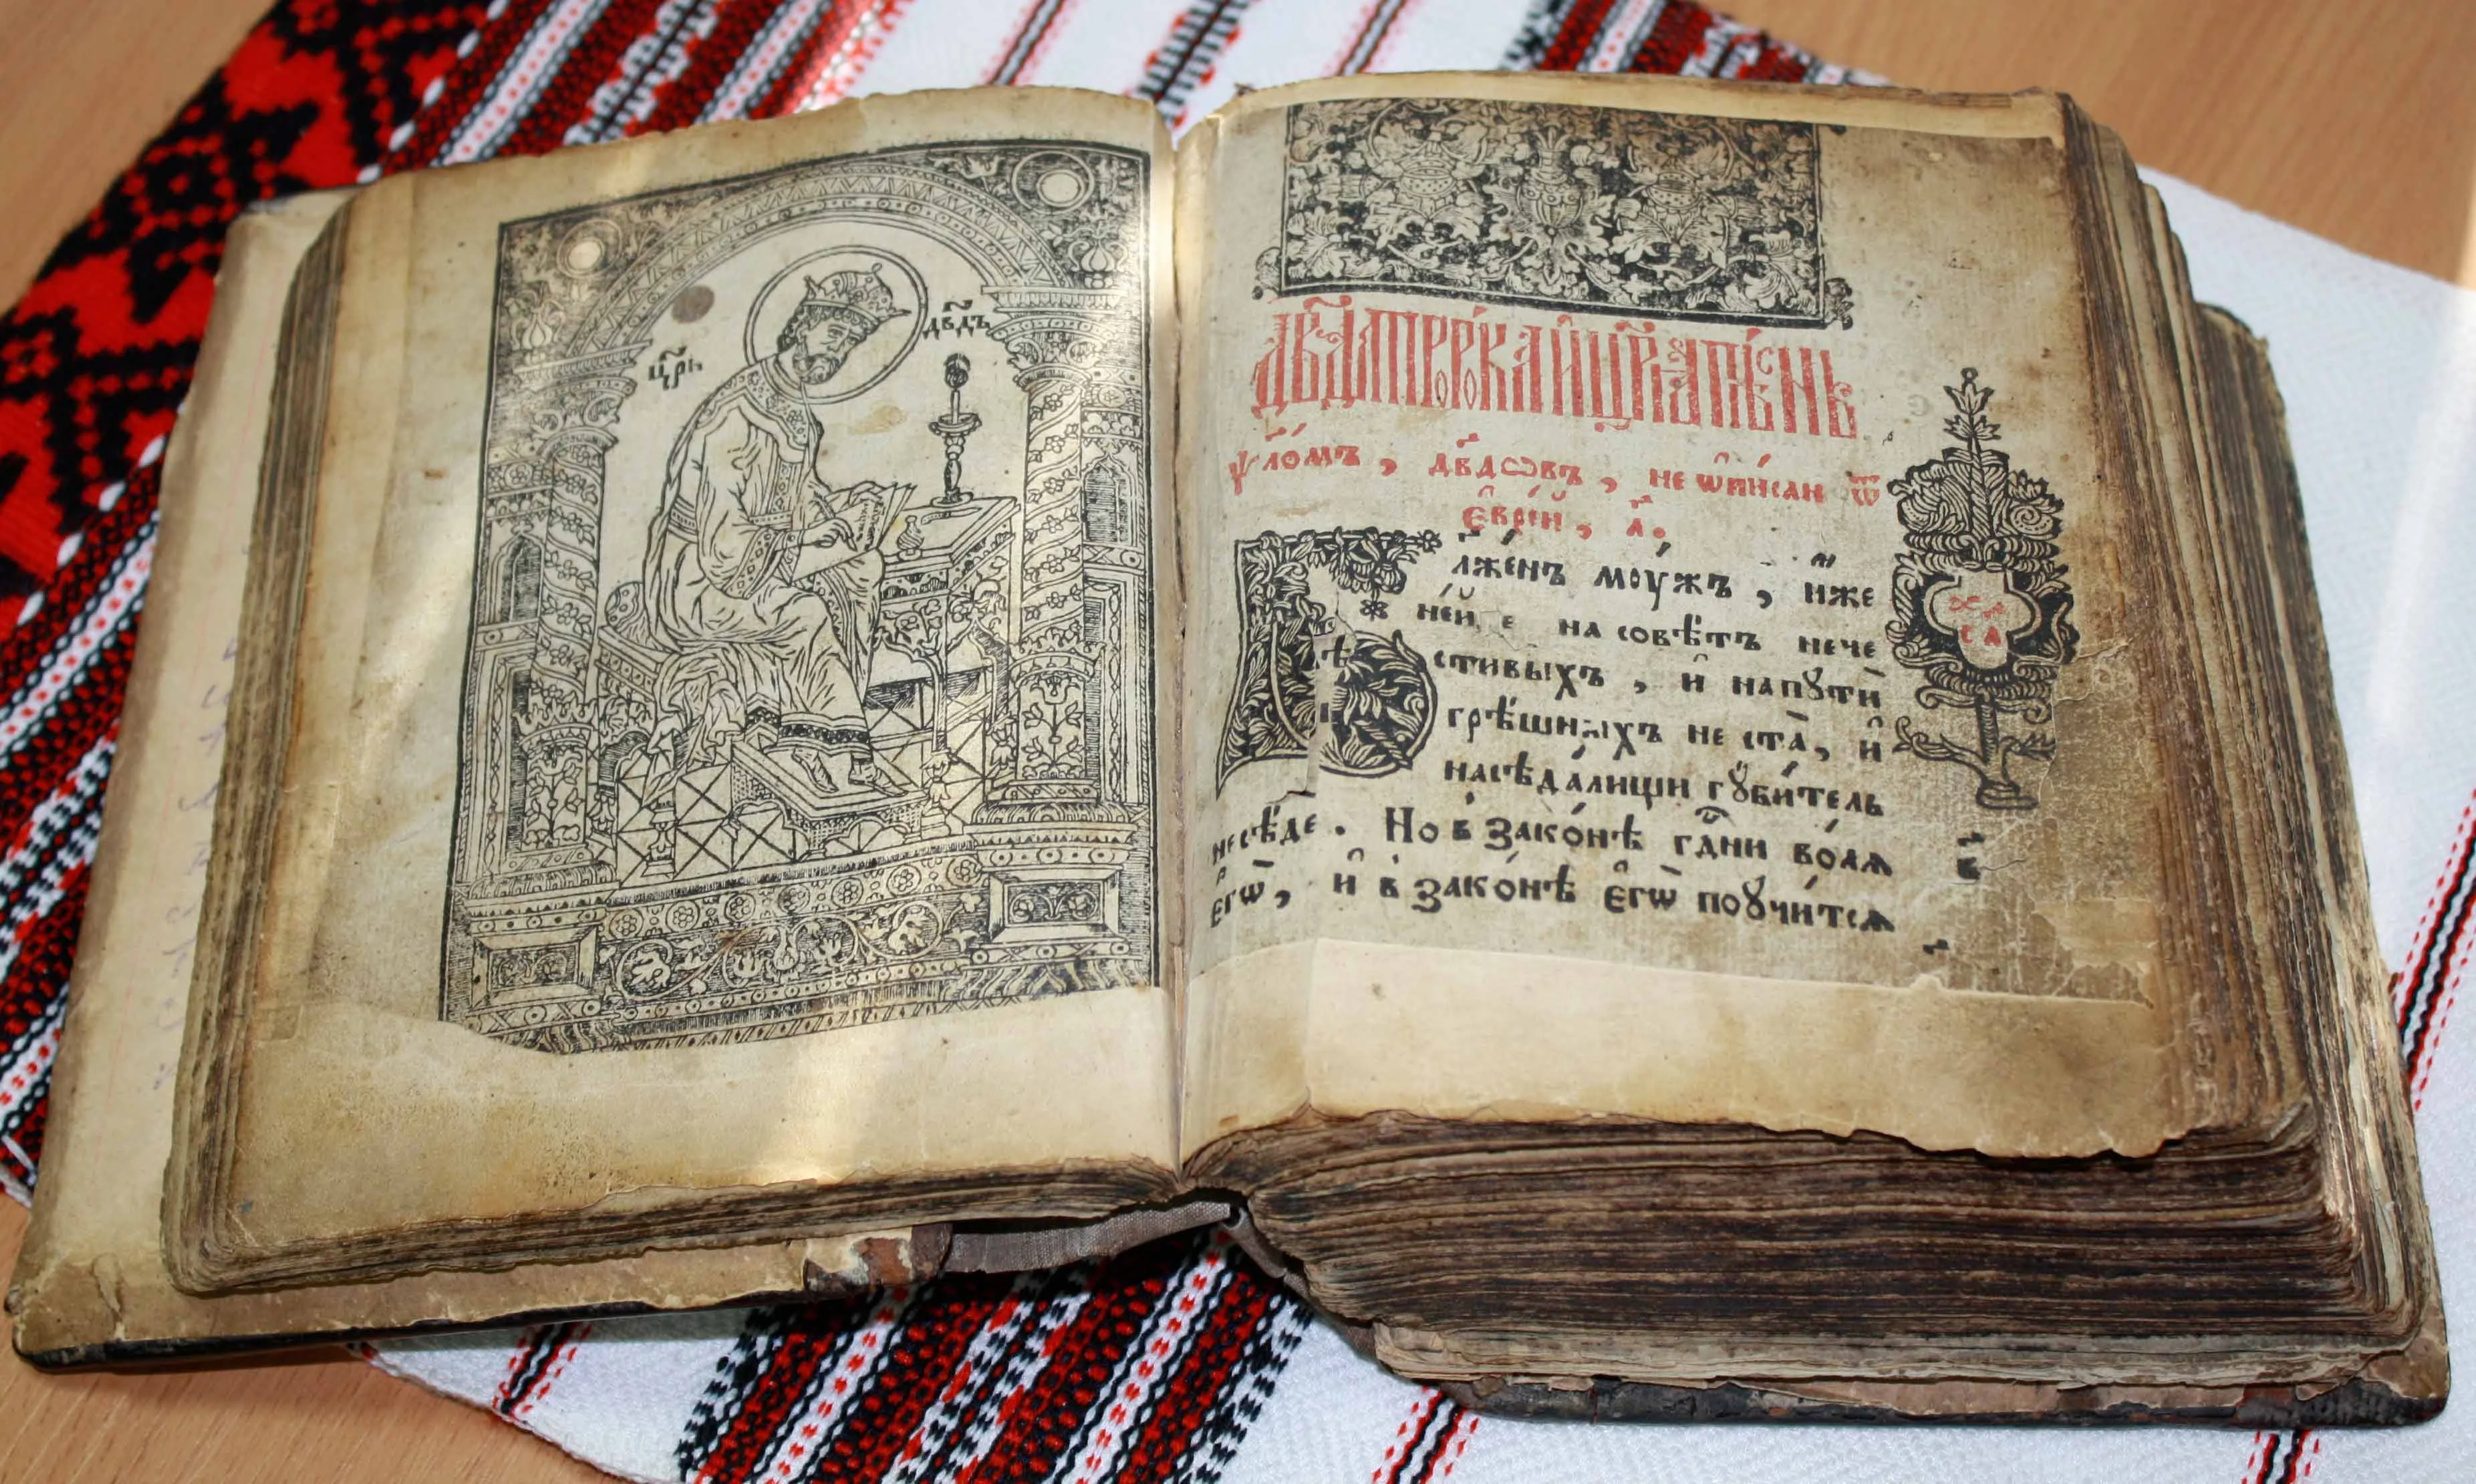 цр҃ь
дв҃дъ
Дв҃да прⷪ҇рока и҆ цр҃ѧ пѣснь
ѱало́мъ , дв҃дѡвъ , не ѡ҆пи́сан ѿ
є҆врє́й , а҃ .
Бл҃же́нъ мꙋжъ , и҆́же
не и҆́де на совѣ́тъ нече
сти́выхъ , и҆ на пꙋтѝ
грѣ́шныхъ не ста̀ , и҆
на сѣда́лищи гꙋби́тель
не сѣ́де . Но в зако́нѣ гдⷭ҇ни во́лѧ
є҆гѡ̀ , и҆ в зако́нѣ є҆гѡ̀ поꙋчи́тсѧ
в҃